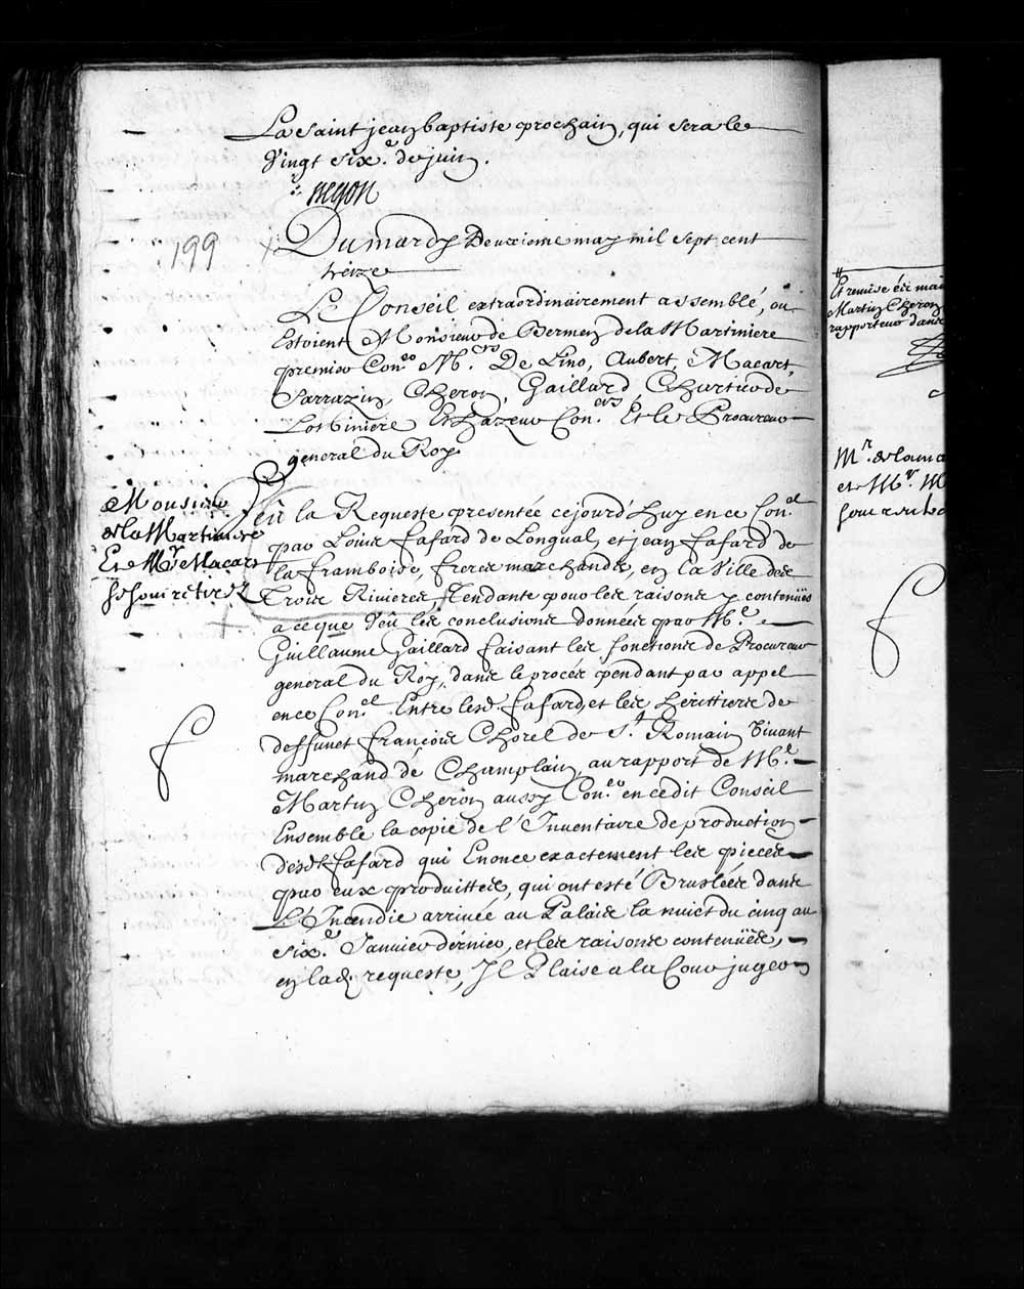 La Saint jean baptiste prochain, qui sera le
Vingt six.e de juin.
Begon
199
Du mardy Deuxieme may mil sept cent
treize
Le Conseil extraordinairement assemblé, ou
Estoient Monsieur de Bermen de la Martiniere
premier Con.er M.rs De Lino, Aubert, Macart,
Sarrazin, Cheron, Gaillard, Chartier de
Lotbiniere Et hazeur Con.ers Et le Procureur
general du Roy
Monsieur
de la Martiniere
Et Mr Macart
se sont retirez
Veu la Requeste presentée cejourd'huy en ce Con.el
par Louis fafard de Longual, et jean fafard de
la framboise, freres marchands, en la Ville des
Trois Rivieres, Tendante pour les raisons y contenües
a ce que Veu les conclusions données par M.e
Guillaume Gaillard faisant les fonctions de Procureur
general du Roy, dans le procés pendant par appel
en ce Con.el Entre lesd. fafard, et les heritiers de
deffunct françois Chorel de S.t Romain Vivant
marchand de Champlain, au rapport de M.e
Martin Cheron aussy Con.er en cedit Conseil
Ensemble la copie de l'Inventaire de production
desd. fafard qui Enonce exactement les pieces
par eux produittes, qui ont esté Bruslées dans
L'Incendie arrivée au Palais la nuict du cinq au
six.e Janvier dernier, et les raisons contenuës,
en lad. requeste, Il Plaise a la Cour juger
Et remise és mai
Martin Cheron
rapporteur dans
Mr. de la ma
et Mr. M